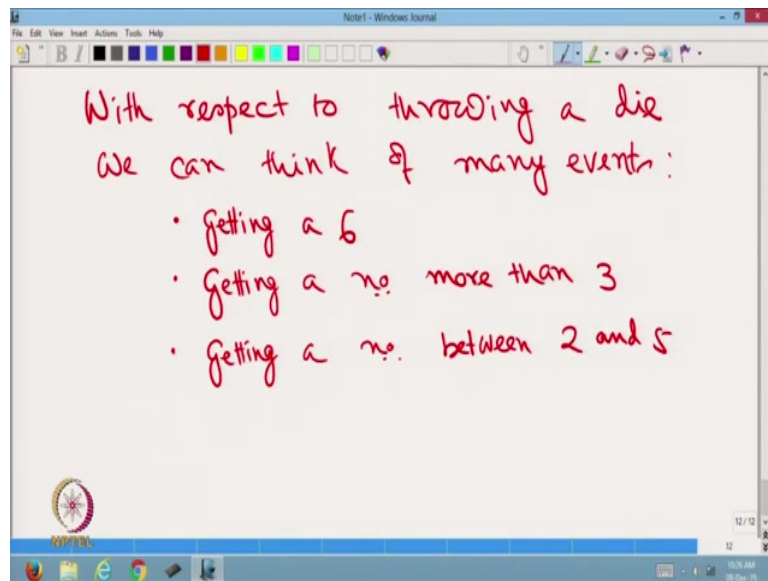 Note1 - Windows Journal
File Edit View Insert Actions Tools Help
B I
With respect to throwing a die
we can think of many events:
• Getting a 6
• Getting a no. more than 3
• Getting a no. between 2 and 5
NPTEL
12/12
12
10:26 AM